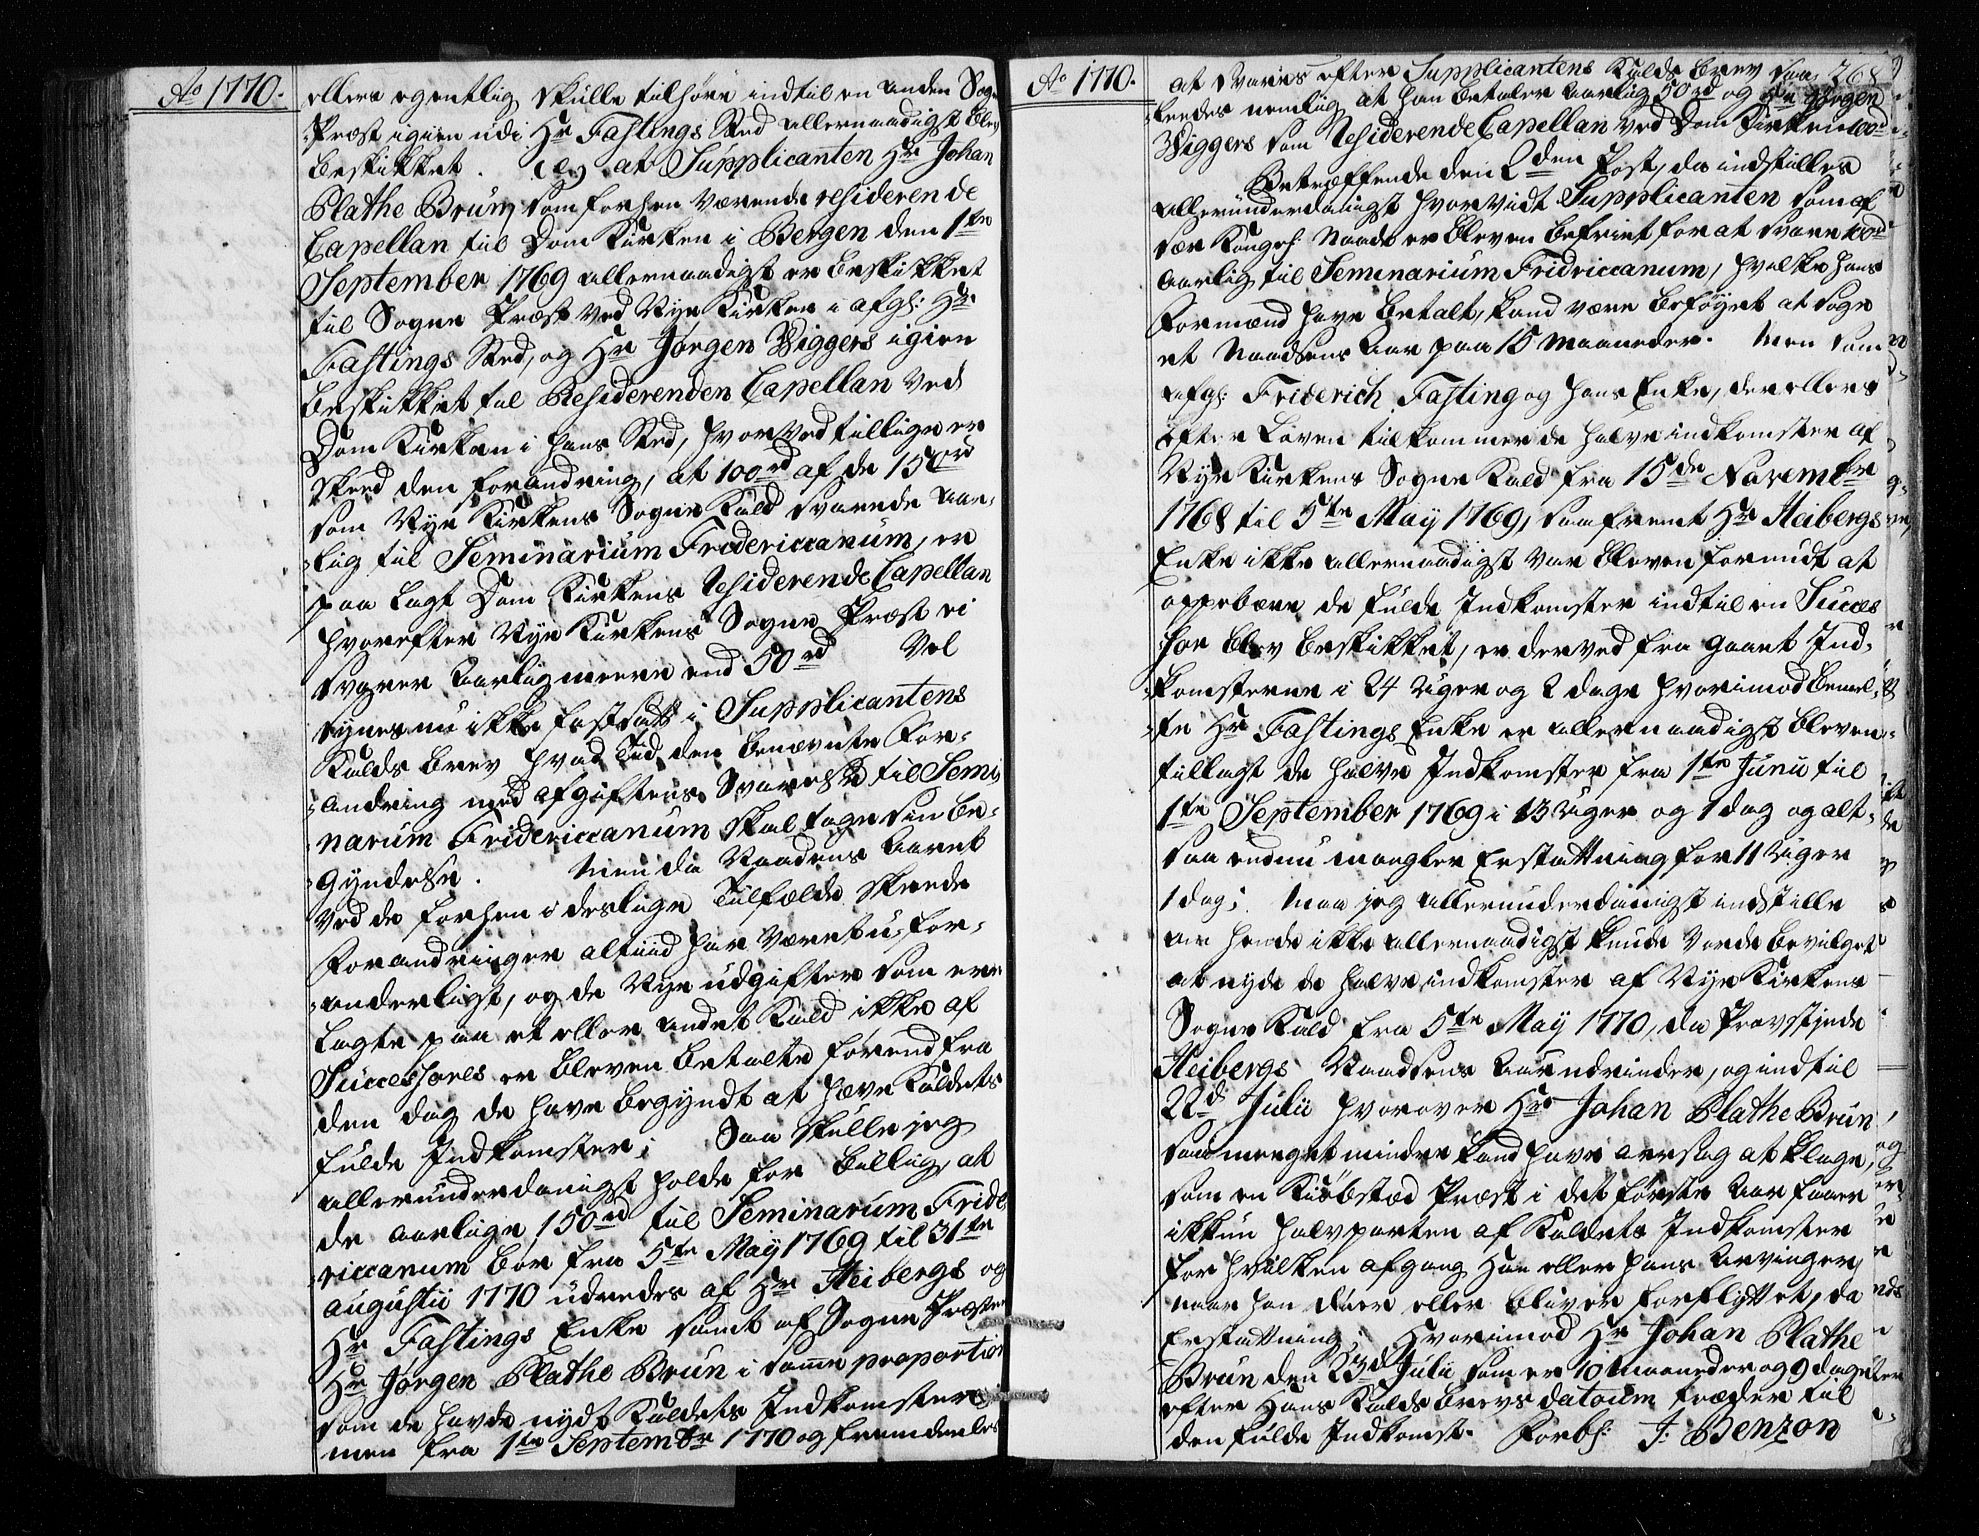 Ao 1770.
ellers egentlig skulle tilhøre indtil en anden Sogne
Præst igien udi Hr Fastings Sted allernaadigst blev
beskikket. (e) at Supplicanten Hr Johan
Plathe Brun, som forhen værende residerende
Capellan til Dom Kirken i Bergen den 1te
September 1769 allernaadigst er beskikket
til Sogne Præst ved Nye Kirken i afgl: Hr
Fastings Sted, og Hr Jørgen Wiggers igien
beskikket til Residerenden Capellan ved
Dom Kirken i hans Sted, hvorved tillige er
skeed den forandring, at 100 rd af de 150 rd
som Nye Kirkens Sogne Kald svarede aar-
-lig til Seminarium Fredericianum, er
paa lagt Dom Kirkens Residerende Capellan
hvorefter Nye Kirkens Sogne Præst ei
svarer aarlig meere end 50 rd Vel
synes nu ikke fastsatt i Supplicantens
Kalds brev hvad Tid den benævnte For-
-andring med afgiftens Svarelse til Semi
-narium Fridericianum skal tage sin be-
-gyndelse. Men da Naadens Aaret
ved de forhen i deslige Tilfælde skeede
Forandringer altiid har været u-for-
-anderligt, og de Nye udgifter som ere
lagte paa et eller andet Kald ikke af
Successores er bleven betalte førend fra
den dag de have begyndt at hæve Kaldets
fulde Indkomster; Saa skulle jeg
allerunderdanigst holde for billig, at
de aarlige 150 rd til Seminarum Fride
riccanum bør fra 5te May 1769 til 31te
augustii 1770 udredes af Hr Heibergs og
Hr Fastings Enke samt af Sogne Præsten
Hr Jørgen Plathe Brun i samme proportion
som de havde nydt Kaldets Indkomster
men fra 1te Septembr 1770 og fremdeeles
Ao 1770.
268
at svares efter Supplicantens Kalds brev saa-
-ledes nemlig at han betaler aarlig 50 rd og Hr Jørgen
Wiggers som Residerende Capellan ved Dom Kirken 100 rd
Betreffende den 2den Post, da indstilles
allerunderdanigst hvorvidt Supplicanten som af
sær Kongel: Naade er bleven befriet for at svare 100 rd
aarlig til Seminarium Fridriccanum, hvilke hans
Formænd have betalt, kand være beføyet at søge
et Naadsens Aar paa 15 Maaneder. Men som
afgl: Friderich Fasting og hans Enke, der ellers
efter Loven tilkommer de halve indkomster af
Nye Kirkens Sogne Kald fra 15de Novembr
1768 til 5te May 1769, saafremt Hr Heibergs
Enke ikke allernaadigst var bleven formeent at
oppebære de fulde Indkomster indtil en Succes
sor blev beskikket, er derved fra gaaet Ind-
-komsterne i 24 Uger og 2 dage hvorimod bemel-
-te Hr Fastings Enke er allernaadigst bleven
tillagt de halve Indkomster fra 1te Junii til
1te September 1769 i 13 Uger og 1 dag og alt-
saa endnu mangler Erstattning for 11 Uger
1 dag; Maa jeg allerunderdanigst indstille
om hende ikke allernaadigst kunde vorde bevilget
at nyde de halve indkomster af Nye Kirkens
Sogne Kald fra 5te May 1770, da Provstinde
Heibergs Naadsens Aar endvinder, og indtil
22d Julii hvorover Hr Johan Plathe Brun
saa meeget mindre kand have aarsag at klage,
som en Kiøbstæd Præst i det første Aar faaer
ikkun halvparten af Kaldets Indkomster
for hvilken afgang Han eller hans Arvinger,
naar han døer eller bliver forflyttet, da
Erstattning; Hvorimod Hr Johan Plathe
Brun den 23d Julii som er 10 Maaneder og 9 dage
efter Hans Kalds brevs datoum træder til
den fulde Indkomst. Forbl: J: Benzon